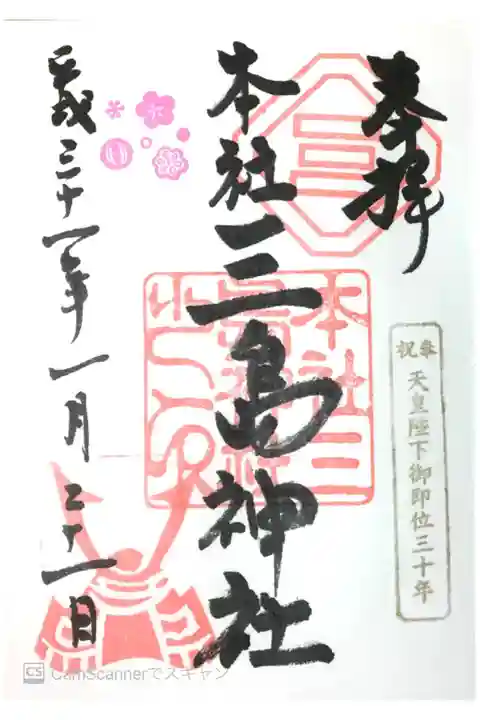 奉拝
奉祝 天皇陛下御即位三十年
本社三島神社
本社三島神社之印
平成三十一年一月二十一日
CS CamScannerでスキャン